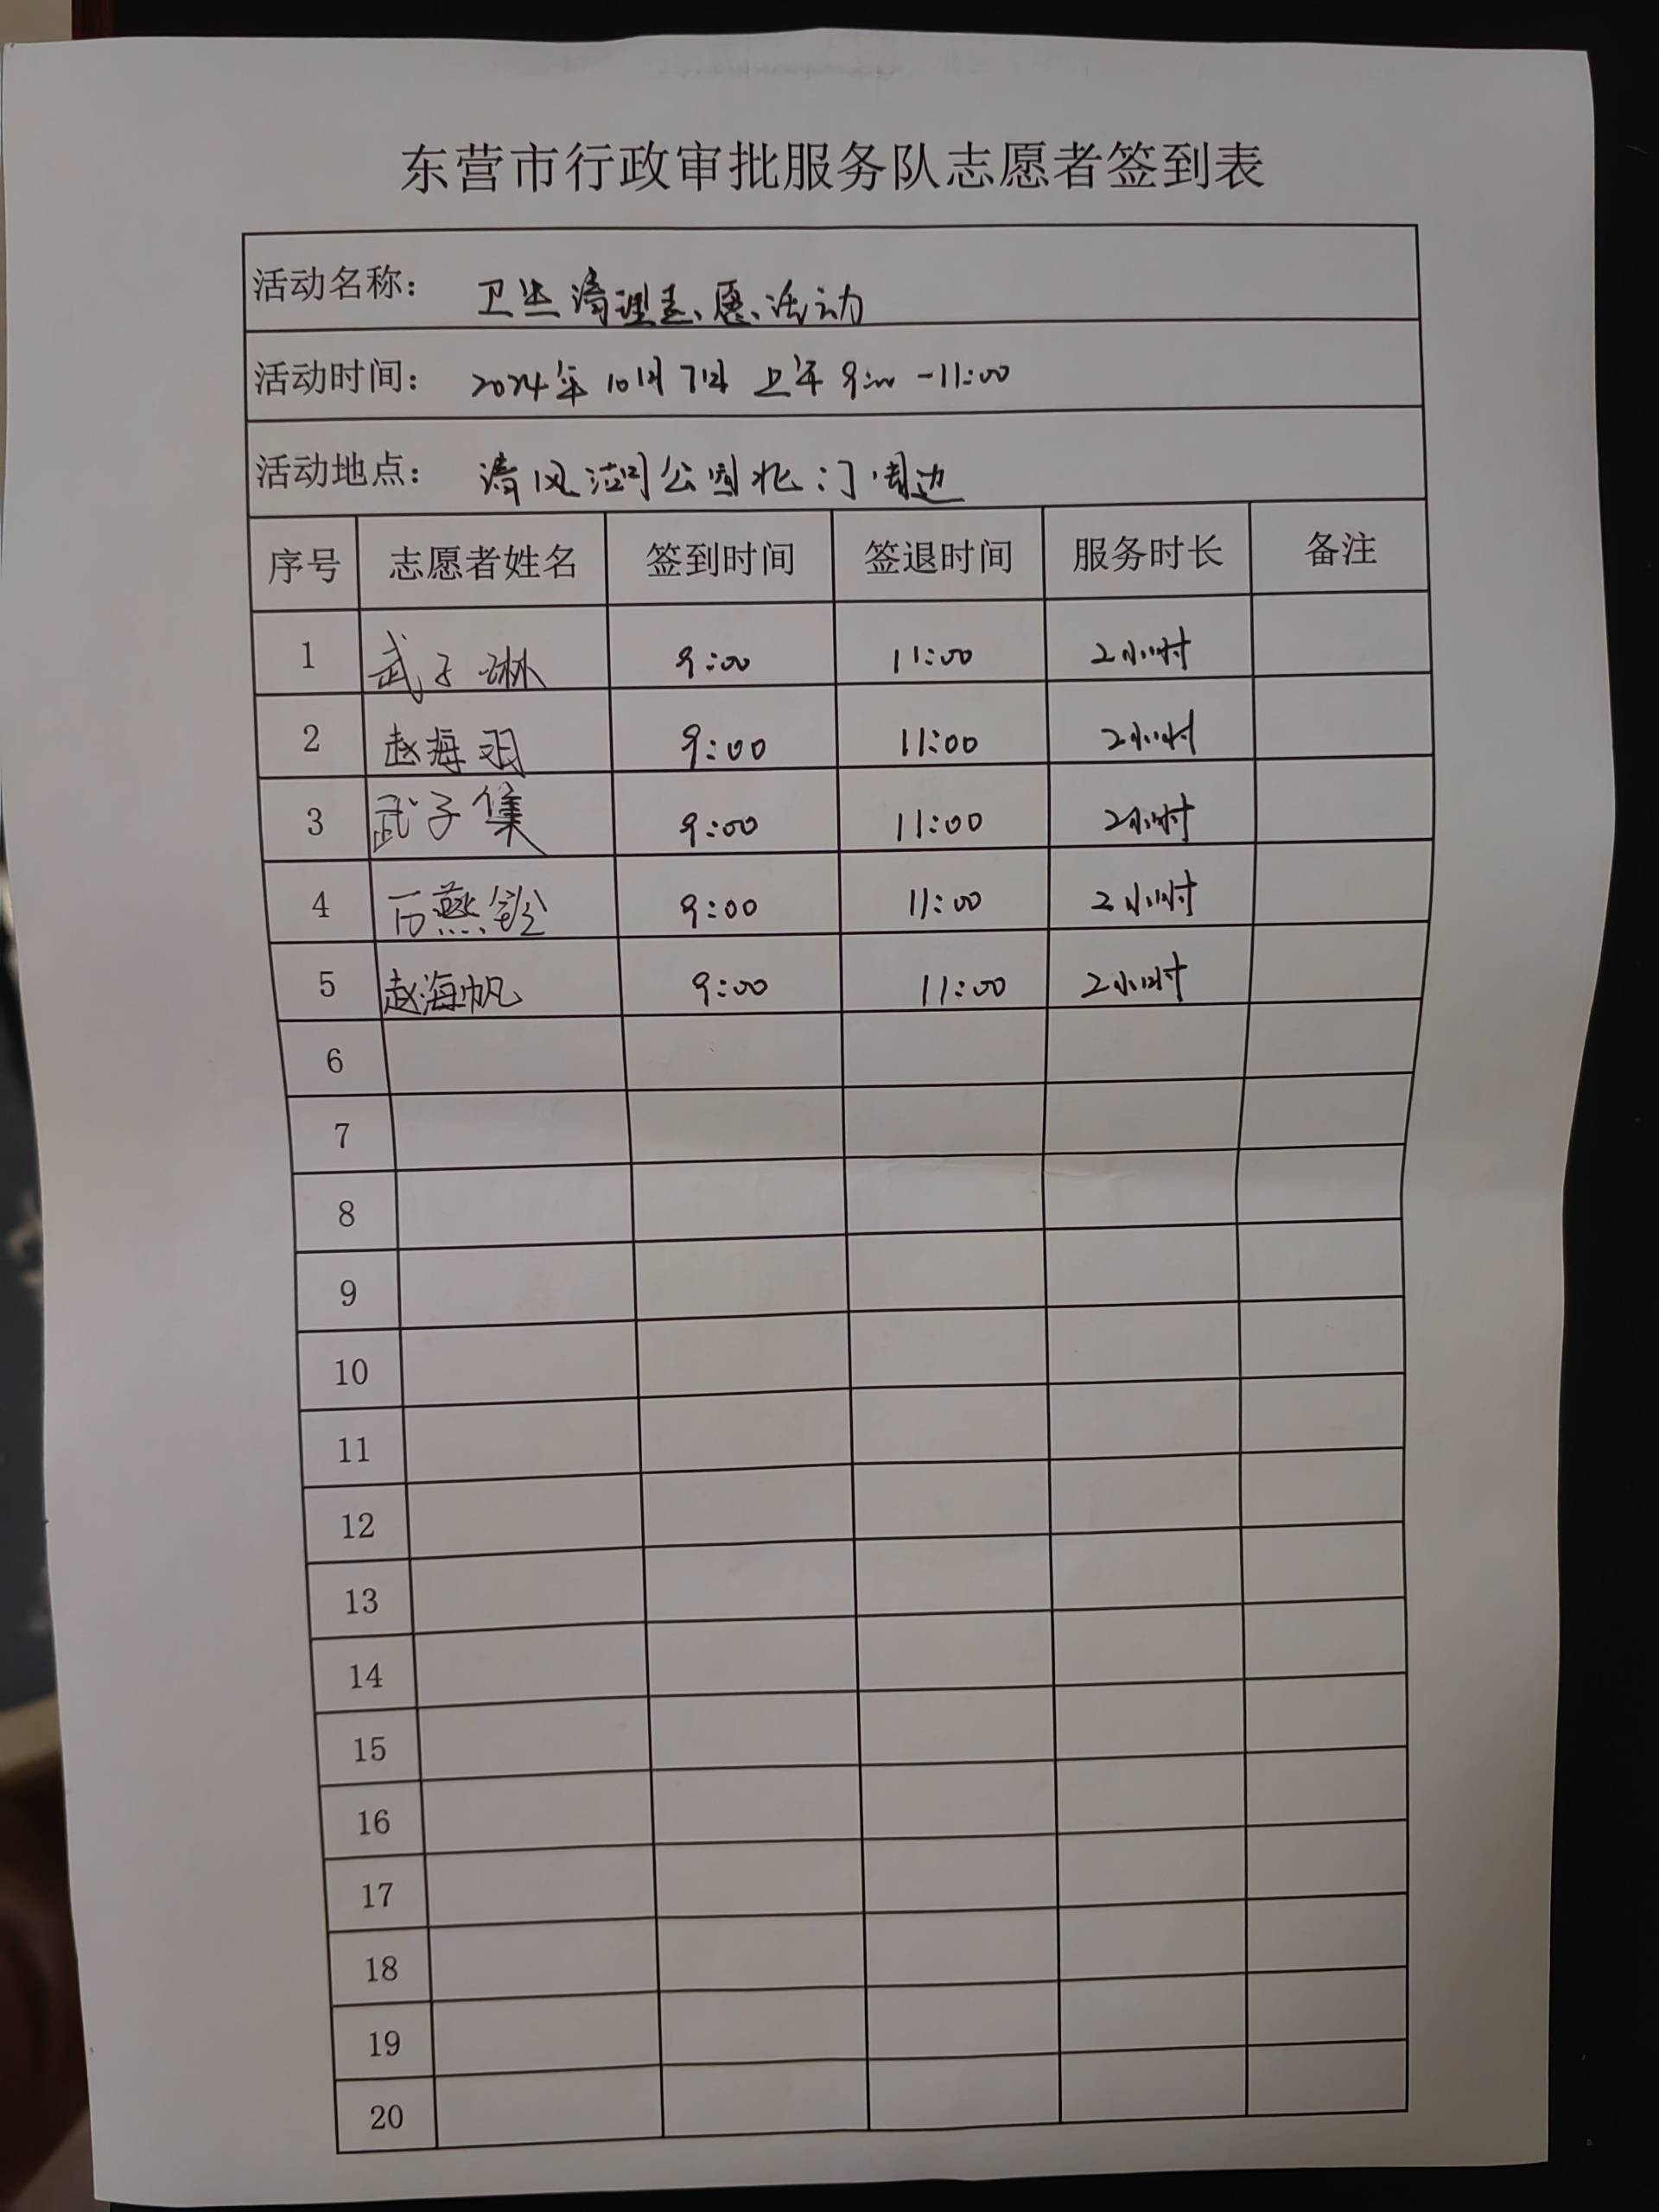 东营市行政审批服务队志愿者签到表
活动名称： 卫生清理志愿活动
活动时间： 2024年10月7日 上午9:00-11:00
活动地点： 清风湖公园北门周边
序号 志愿者姓名 签到时间 签退时间 服务时长 备注
1 武子琳 9:00 11:00 2小时
2 赵海羽 9:00 11:00 2小时
3 武子集 9:00 11:00 2小时
4 燕铃 9:00 11:00 2小时
5 赵海帆 9:00 11:00 2小时
6
7
8
9
10
11
12
13
14
15
16
17
18
19
20